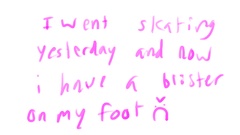 I went skating
yesterday and now
i have a blister
on my foot